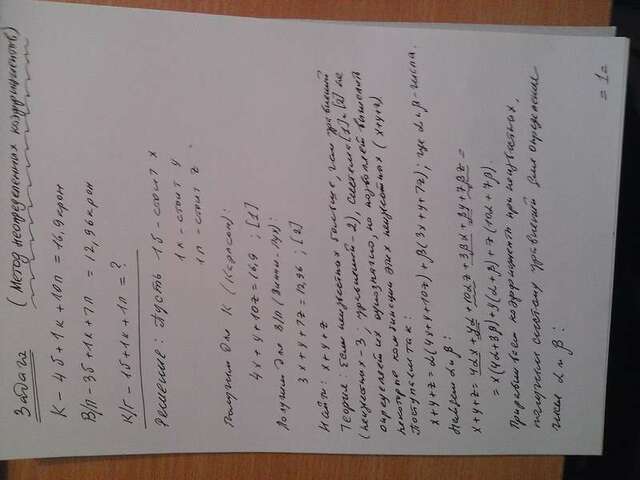 Задача (Метод неопределенных коэффициентов)
К – 4б + 1к + 10п = 16,9 крон
В/П – 3б + 1к + 7п = 12,96 крон
К/Г – 1б + 1к + 1п = ?
Решение: Пусть 1б – стоит x
1к – стоит y
1п – стоит z.
Получим для К (Карлсон):
4x + y + 10z = 16,9 ; [1]
Получим для В/П (Винни-Пух):
3x + y + 7z = 12,96 ; [2]
Найти: x+y+z
Теория: Если неизвестных больше, чем уравнений
(неизвестных – 3; уравнений – 2), система [1] и [2] не
определяет их однозначно, но позволяет вычислить
некоторые комбинации этих неизвестных (x+y+z)
Поступаем так:
x+y+z = α(4x+y+10z) + β(3x+y+7z); где α и β – числа.
Найдем α и β:
x+y+z = 4αx + yα + 10αz + 3βx + βy + 7βz =
= x(4α+3β) + y(α+β) + z(10α+7β).
Приравняем коэффициенты при неизвестных,
получим систему уравнений для определения
чисел α и β:
= 1 =